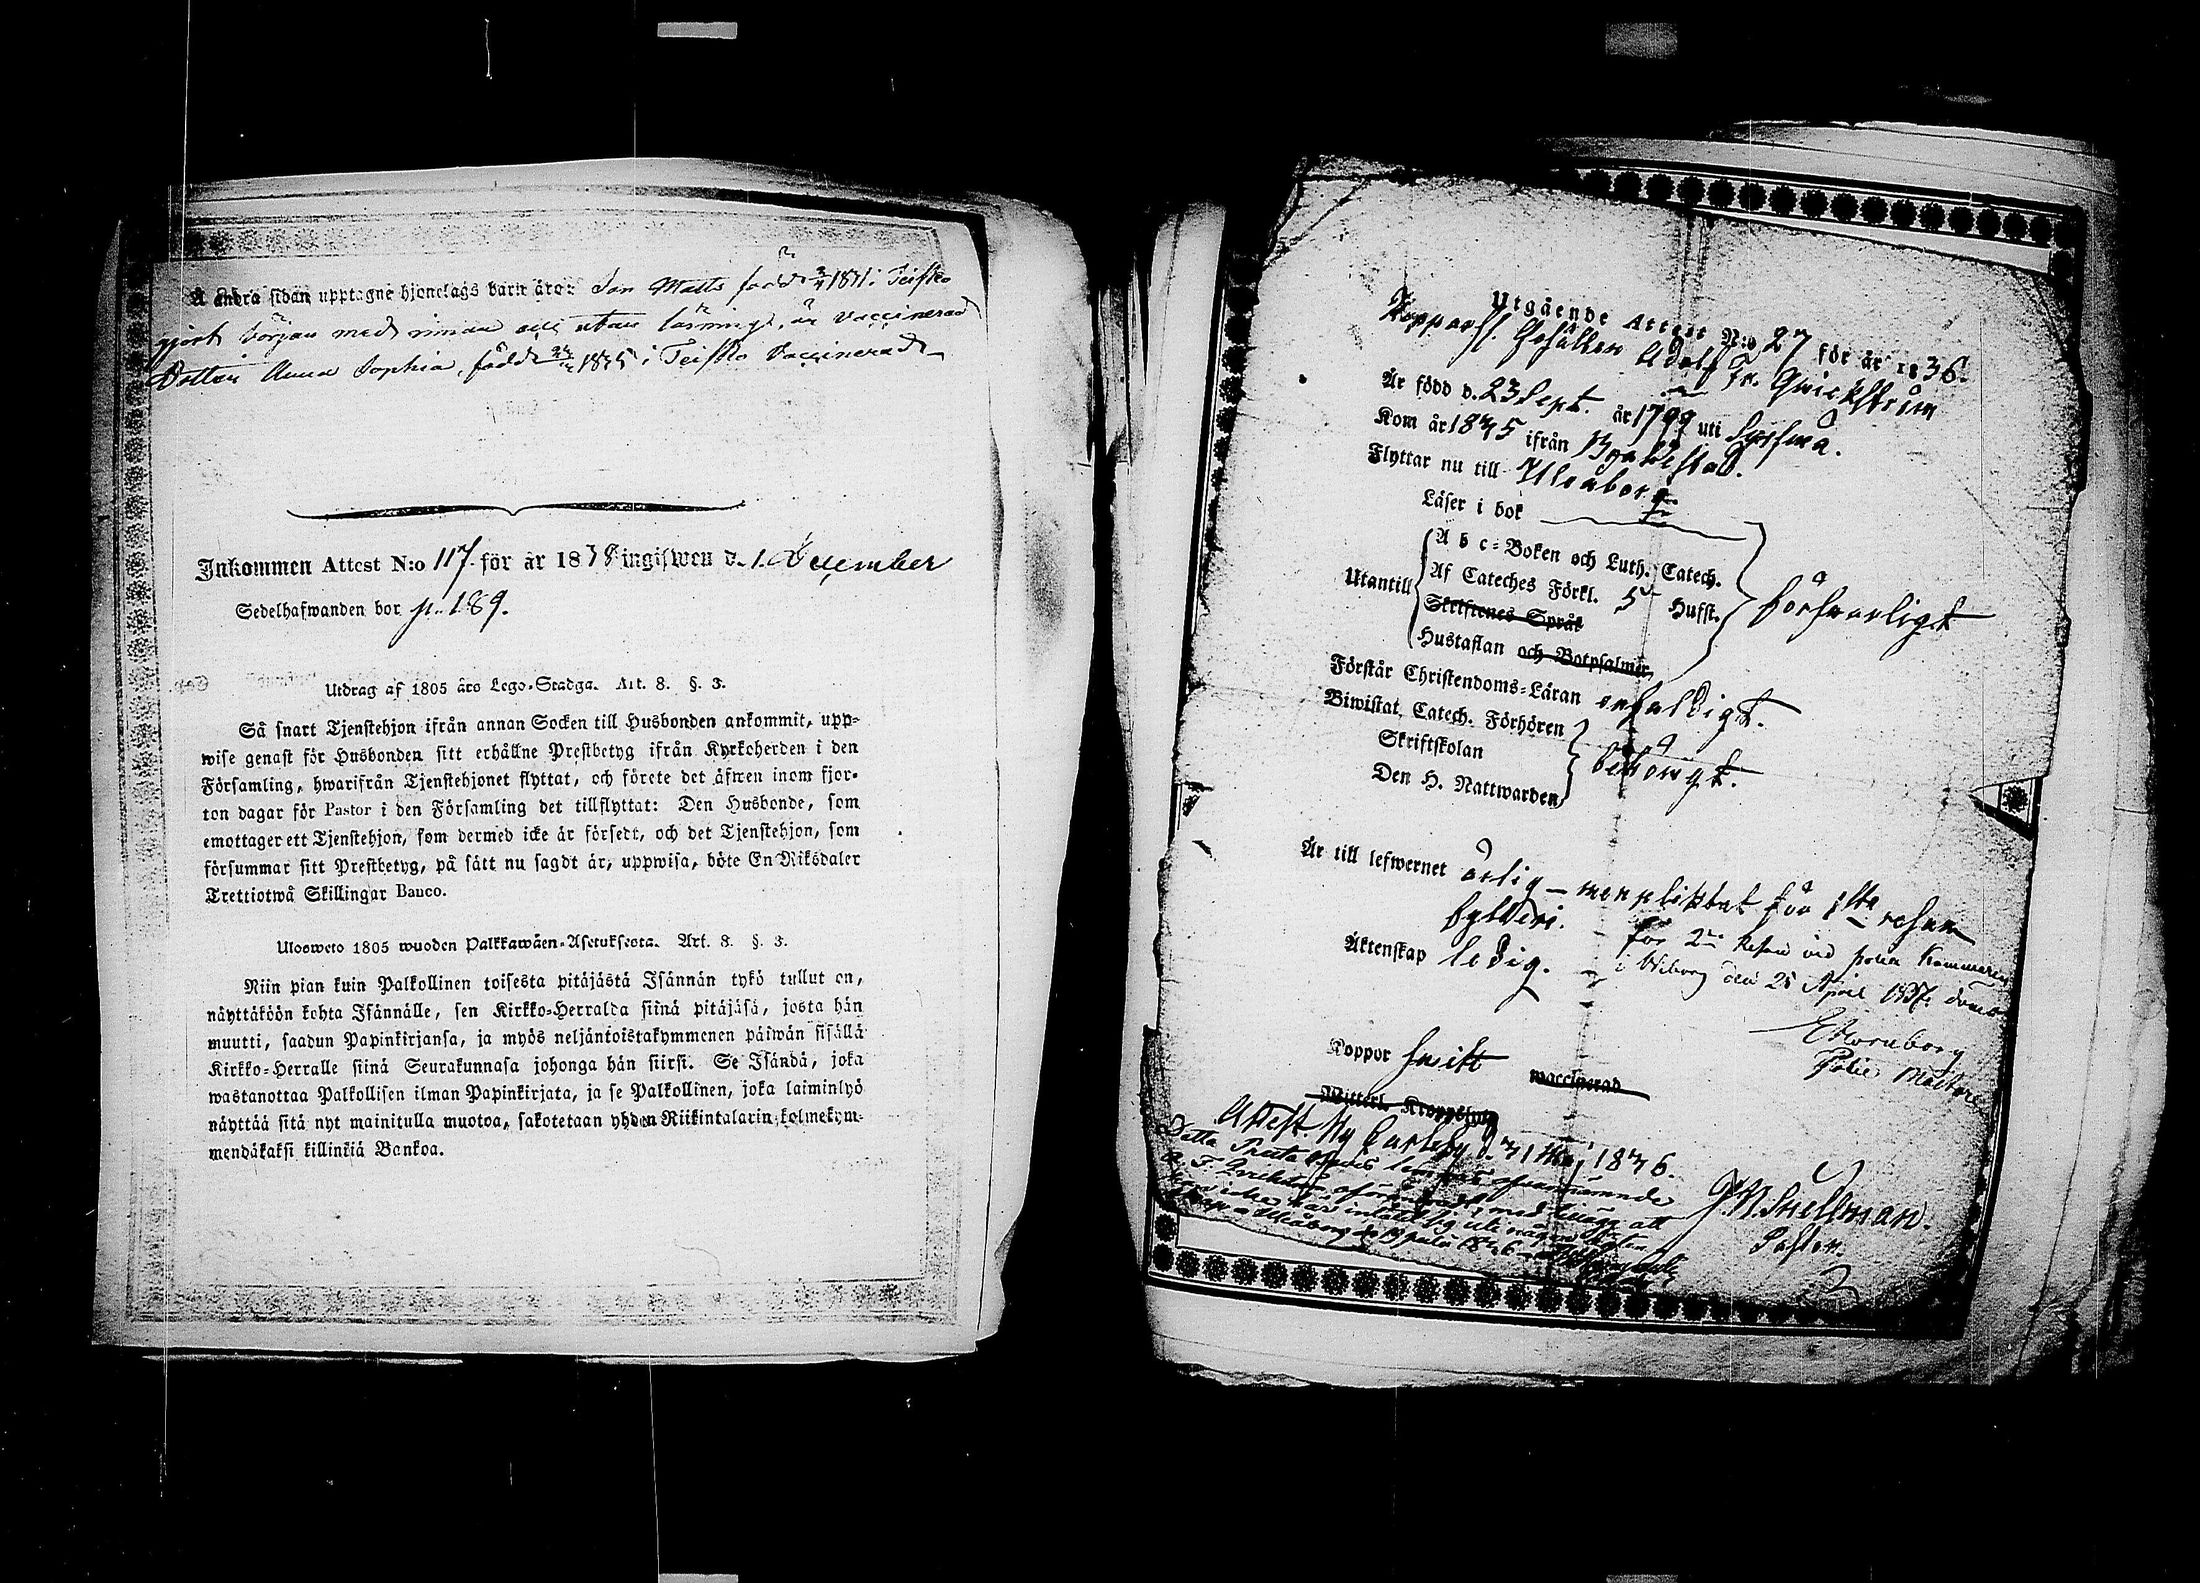 Å andra sidan upptagne hjonelags barn äro: Son Matts född 1831 i Teisko
gjort början med innan och utan läsning, är vaccinerad
Dottern Anna Sophia, född 1835 i Teisko Vaccinerad
Inkommen Attest N:o 117 för år 1838 ingifwen d. 1. December
Sedelhafwanden bor p. 189.
Utdrag af 1805 års Lego-Stadga. Art. 8. §. 3.
Så snart Tjenstehjon ifrån annan Socken till Husbonden ankommit, upp-
wise genast för Husbonden sitt erhållne Prestbetyg ifrån Kyrkoherden i den
Församling, hwarifrån Tjenstehjonet flyttat, och förete det äfwen inom fjor-
ton dagar för Pastor i den Församling det tillflyttat: Den Husbonde, som
emottager ett Tjenstehjon, som dermed icke är försedt, och det Tjenstehjon, som
försummar sitt Prestbetyg, på sätt nu sagdt är, uppwisa, böte En Riksdaler
Trettiotwå Skillingar Banco.
Ulosweto 1805 wuoden Palkkawäen-Asetuksesta. Art. 8. §. 3.
Niin pian kuin Palkollinen toisesta pitäjästä Isännän tykö tullut on,
näyttäköön kohta Isännälle, sen Kirkko-Herralda siinä pitäjäsä, josta hän
muutti, saadun Papinkirjansa, ja myös neljäntoistakymmenen päiwän sisällä
Kirkko-Herralle siinä Seurakunnasa johonga hän siirsi. Se Isändä, joka
wastanottaa Palkollisen ilman Papinkirjata, ja se Palkollinen, joka laiminlyö
näyttää sitä nyt mainitulla muotoa, sakotetaan yhden Riikintalarin kolmekym-
mendäkaksi killinkiä Bankoa.
Utgående Attest N:o 27 för år 1836.
Kopparsl. Gesällen Adolf Fr. Qwickström
Är född d. 23 Sept. år 1799 uti Sysmä.
Kom år 1835 ifrån Brahestad.
Flyttar nu till Uleåborg.
Läser i bok
Utantill
A b c-Boken och Luth. Catech.
Af Cateches Förkl. 5 Hufst.
Skriftenes Språk
Hustaflan och Botpsalmer
försvarligt
Förstår Christendoms-Läran enfaldigt.
Biwistat, Catech. Förhören
Skriftskolan
Den H. Nattwarden
behörigt.
Är till lefwernet ärlig – men pliktat för 1sta resan
fylleri.
för 2ra Resan vid Polis Kammaren
i Wiborg den 25 April 1837.
Äktenskap ledig.
Polis Mästare
Koppor haft waccinerad
Attest. Ny Carleby d. 31 Maj 1836.
J. W. Snellman.
Pastor.
Detta